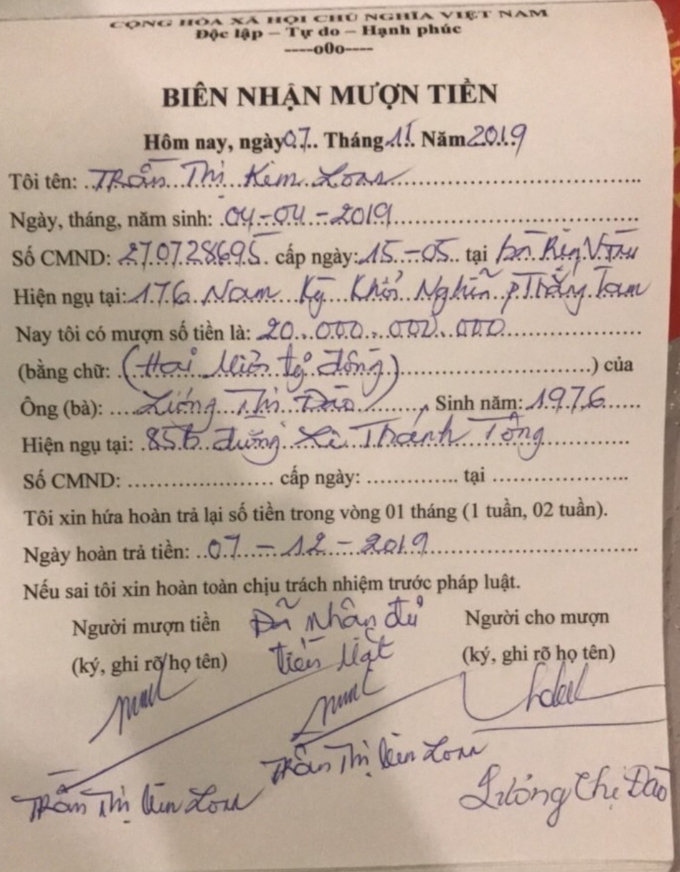 CỘNG HÒA XÃ HỘI CHỦ NGHĨA VIỆT NAM
Độc lập – Tự do – Hạnh phúc
----o0o----
BIÊN NHẬN MƯỢN TIỀN
Hôm nay, ngày 07 Tháng 11 Năm 2019
Tôi tên: Trần Thị Kim Loan
Ngày, tháng, năm sinh: 04-04-2019
Số CMND: 270728695 cấp ngày: 15-05 tại Bà Rịa V Tàu
Hiện ngụ tại: 176 Nam Kỳ Khởi Nghĩa P Thắng Tam
Nay tôi có mượn số tiền là: 20.000.000.000
(bằng chữ: (Hai Mươi tỷ đồng) ) của
Ông (bà): Lương Thị Đào, Sinh năm: 1976
Hiện ngụ tại: 85B đường Lê Thánh Tông
Số CMND: .............................. cấp ngày: .............. tại ........................
Tôi xin hứa hoàn trả lại số tiền trong vòng 01 tháng (1 tuần, 02 tuần).
Ngày hoàn trả tiền: 07-12-2019
Nếu sai tôi xin hoàn toàn chịu trách nhiệm trước pháp luật.
Người mượn tiền Đã nhận đủ Người cho mượn
(ký, ghi rõ họ tên) tiền Mặt (ký, ghi rõ họ tên)
Trần Thị Kim Loan Trần Thị Kim Loan Lương Thị Đào